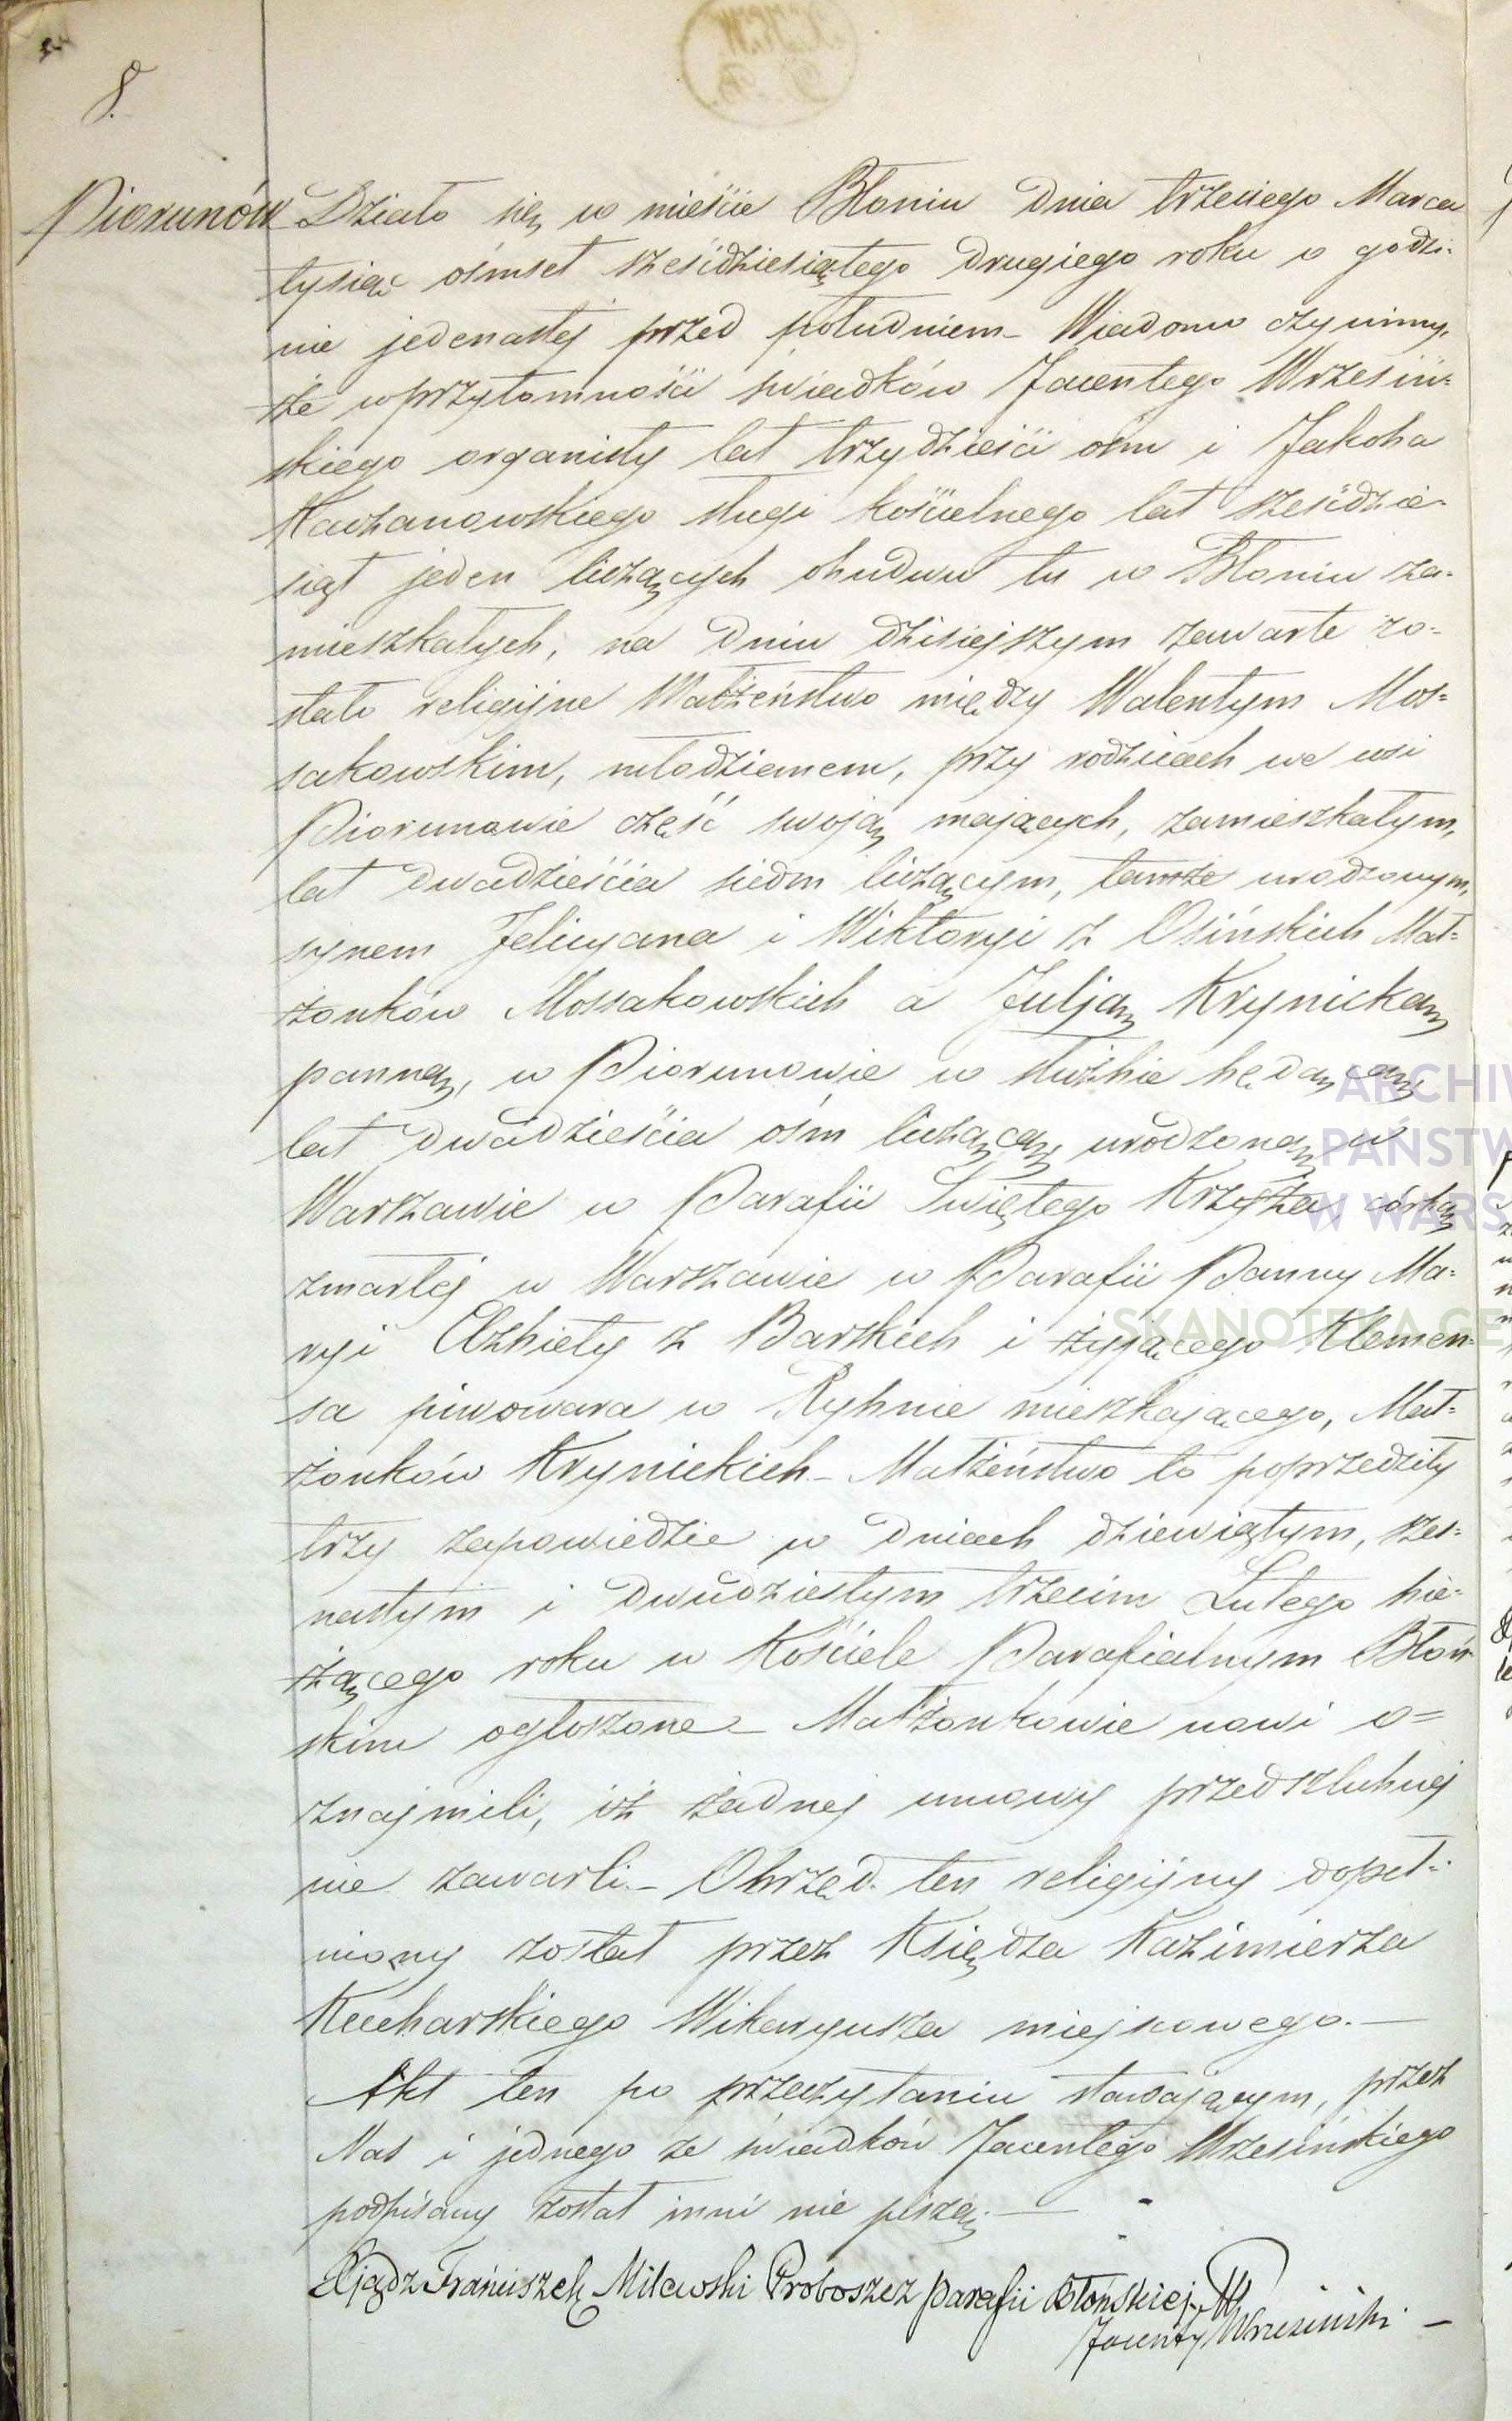 8.
Piorunów Działo się w mieście Błoniu dnia trzeciego Marca
tysiąc ośmset sześćdziesiątego drugiego roku o godzi-
nie jedenastej przed południem – Wiadomo czynimy,
że w przytomności świadków Jacentego Wrzesiń-
skiego organisty lat trzydzieści ośm i Jakóba
Kaczanowskiego sługi kościelnego lat sześćdzie-
siąt jeden liczących obudwu tu w Błoniu za-
mieszkałych, na dniu dzisiejszym zawarte zo-
stało religijne Małżeństwo między Walentym Mos-
sakowskim, młodzianem, przy rodzicach we wsi
Piorunowie część swoją mających, zamieszkałym,
lat dwadzieścia siedm liczącym, tamże urodzonym,
synem Felicyana i Wiktoryi z Osińskich Mał-
żonków Mossakowskich a Julją Krynicką
panną, w Piorunowie w służbie będącą,
lat dwadzieścia ośm liczącą, urodzoną w
Warszawie w Parafii Świętego Krzyża córką
zmarłej w Warszawie w Parafii Panny Ma-
ryi Elżbiety z Barskich i żyjącego Klemen-
sa piwowara w Rybnie mieszkającego, Mał-
żonków Krynickich – Małżeństwo to poprzedziły
trzy zapowiedzie w dniach dziewiątym, szes-
nastym i dwudziestym trzecim Lutego bie-
żącego roku w Kościele Parafialnym Błoń-
skim ogłoszone – Małżonkowie nowi o-
znajmili, iż żadnej umowy przedszlubnej
nie zawarli – Obrzęd ten religijny dopeł-
niony został przez Księdza Kazimierza
Kucharskiego Wikaryusza miejscowego. –
Akt ten po przeczytaniu stawającym, przez
Nas i jednego ze świadków Jacentego Wrzesińskiego
podpisany został inni nie piszą. –
Xjądz Franciszek Milewski Proboszcz parafii Błońskiej
Jacenty Wrzesinski –
ARCHIW
PAŃSTW
W WARS
SKANOTEKA GE